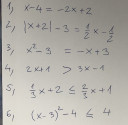 1, x-4 = -2x+2
2, |x+2| - 3 = \frac{1}{2}x - \frac{1}{2}
3, x²-3 = -x+3
4, 2x+1 > 3x-1
5, \frac{1}{3}x+2 ≤ \frac{2}{3}x+1
6, (x-3)² - 4 ≤ 4